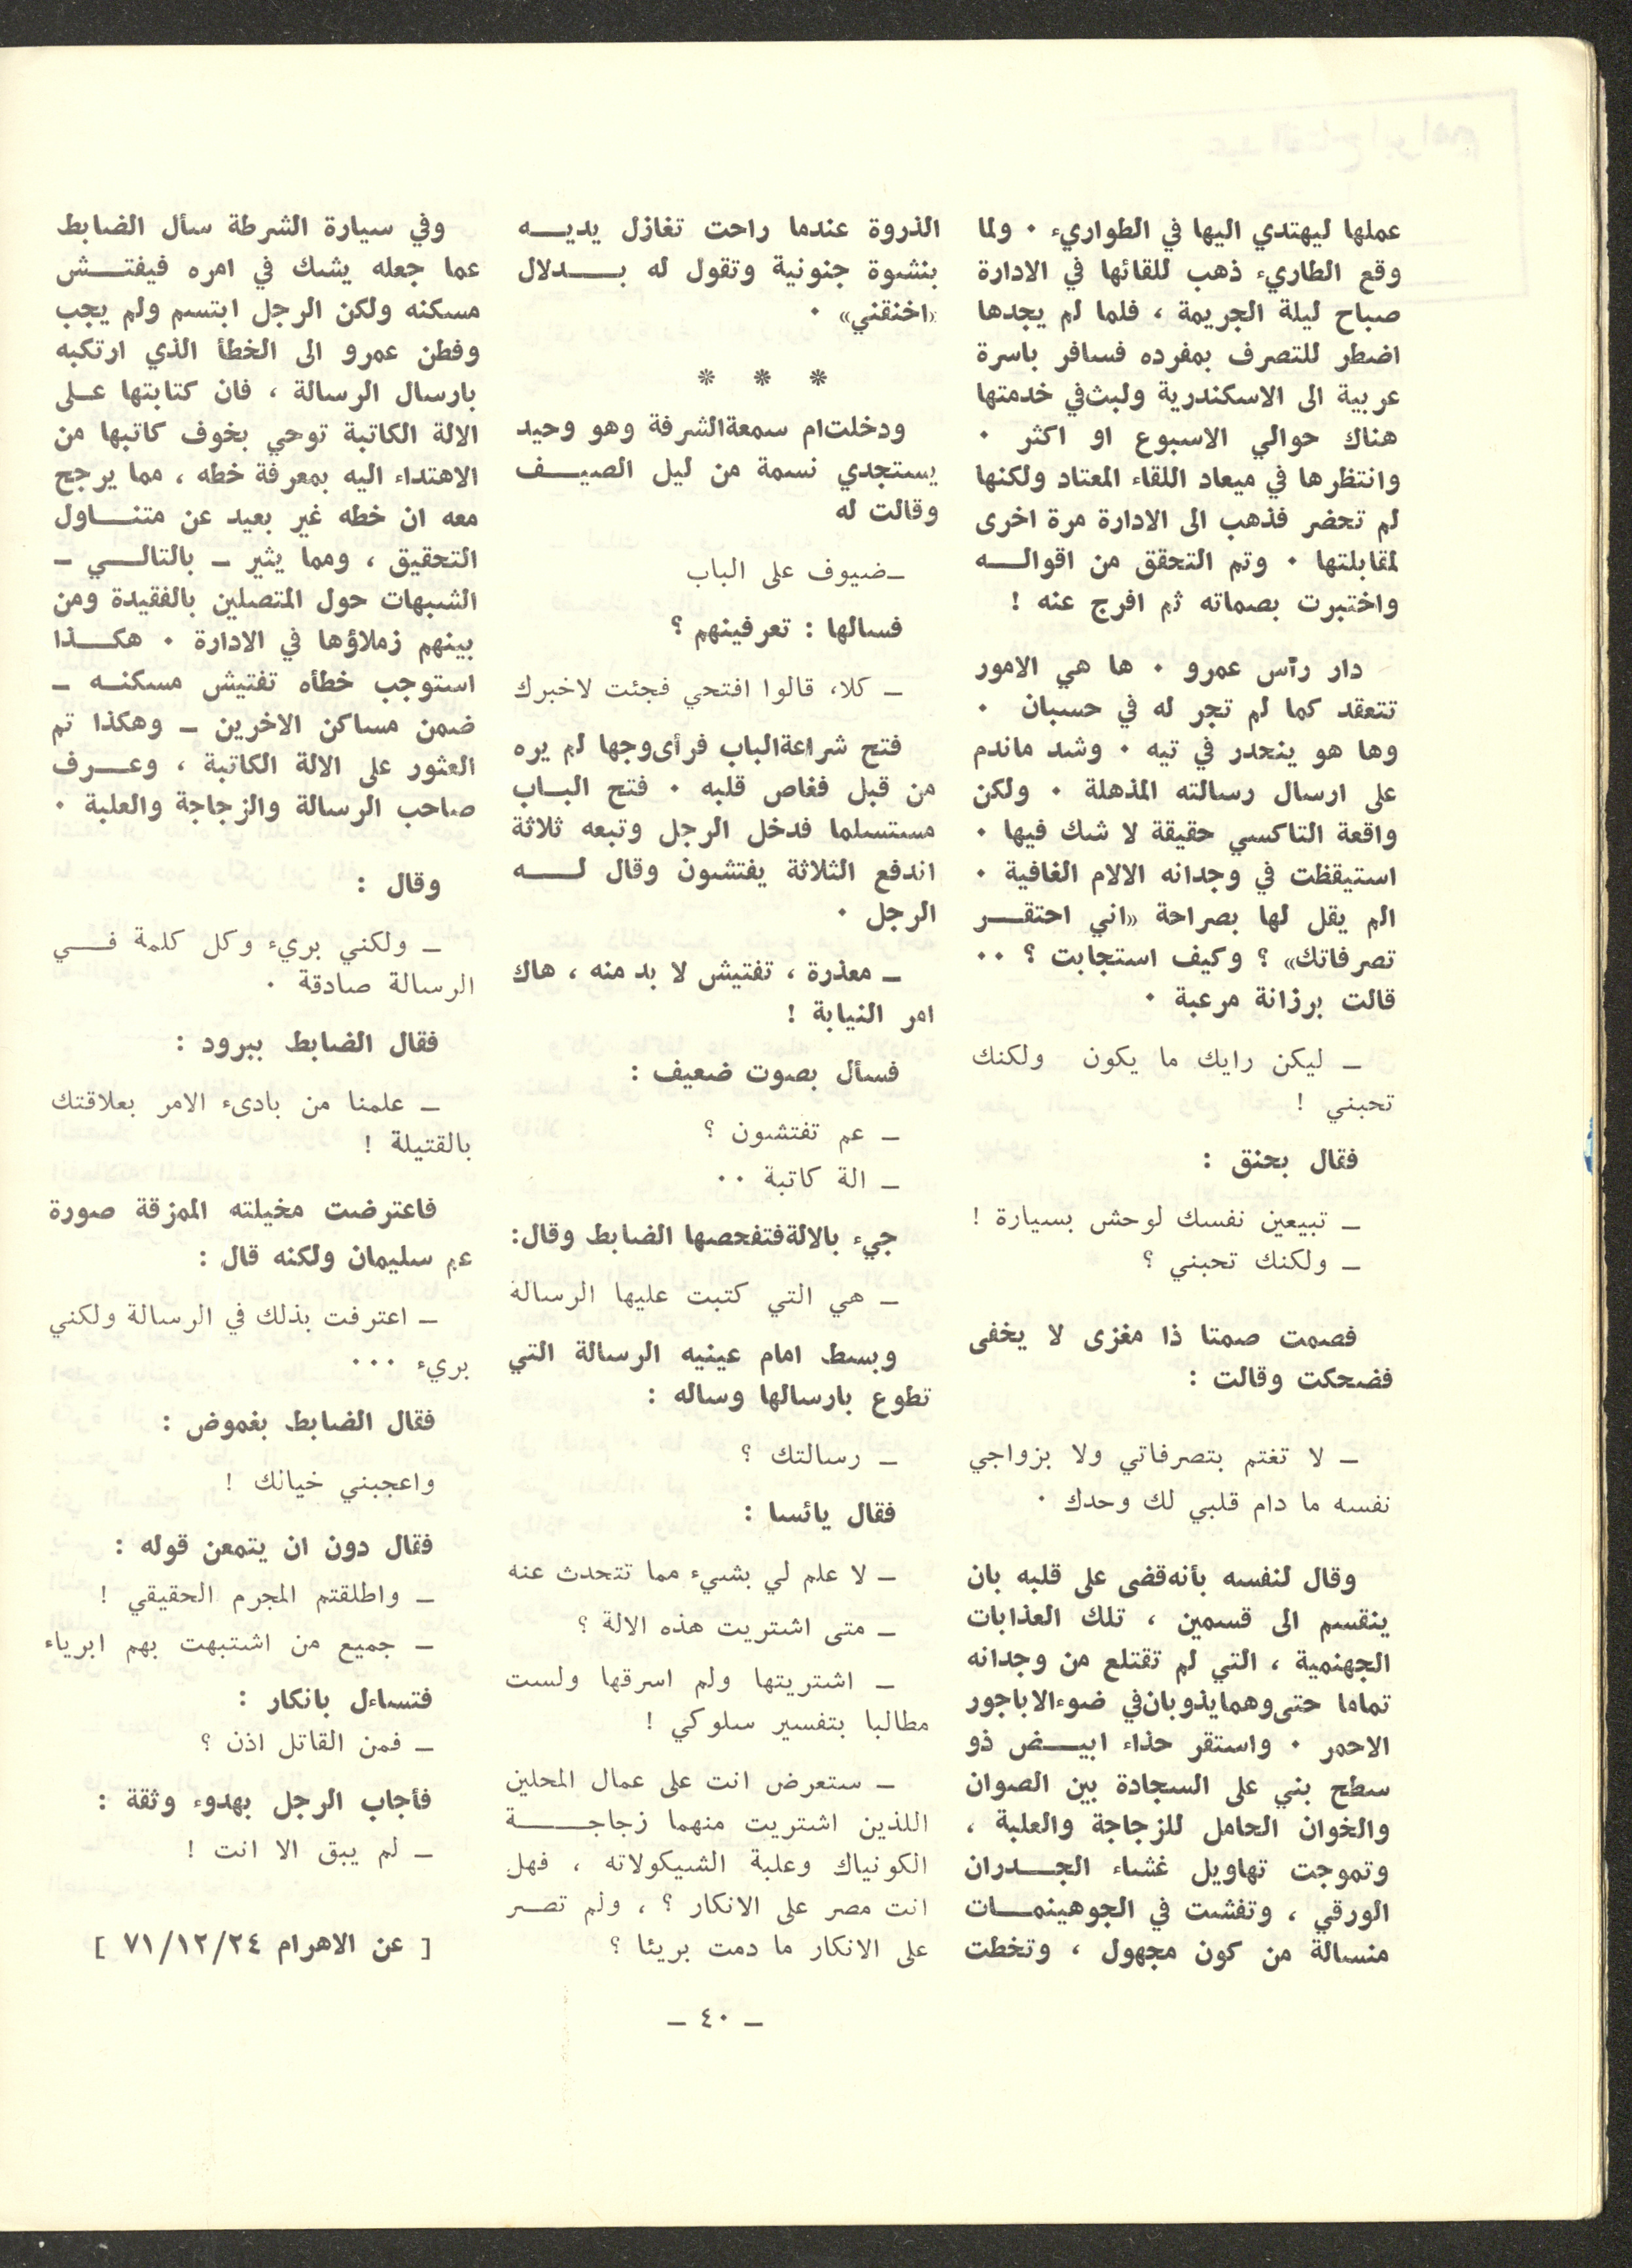 عملها ليهتدي اليها في الطواريء . ولما
وقع الطاريء ذهب للقائها في الادارة
صباح ليلة الجريمة ، فلما لم يجدها
اضطر للتصرف بمفرده فسافر باسرة
عربية الى الاسكندرية ولبث في خدمتها
هناك حوالي الاسبوع او اكثر .
وانتظرها في ميعاد اللقاء المعتاد ولكنها
لم تحضر فذهب الى الادارة مرة اخرى
لمقابلتها . وتم التحقق من اقواله
واختبرت بصماته ثم افرج عنه !
دار رآس عمرو . ها هي الامور
تتعقد كما لم تجر له في حسبان .
وها هو ينحدر في تيه . وشد ماندم
على ارسال رسالته المذهلة . ولكن
واقعة التاكسي حقيقة لا شك فيها .
استيقظت في وجدانه الالام الغافية .
الم يقل لها بصراحة «اني احتقر
تصرفاتك» ؟ وكيف استجابت ؟ ..
قالت برزانة مرعبة .
ـ ليكن رايك ما يكون ولكنك
تحبني !
فقال بحنق :
ـ تبيعين نفسك لوحش بسيارة !
ـ ولكنك تحبني ؟
فصمت صمتا ذا مغزى لا يخفى
فضحكت وقالت :
ـ لا تغتم بتصرفاتي ولا بزواجي
نفسه ما دام قلبي لك وحدك .
وقال لنفسه بأنه قضى على قلبه بان
ينقسم الى قسمين ، تلك العذابات
الجهنمية ، التي لم تقتلع من وجدانه
تماما حتى وهما يذوبان في ضوء الاباجور
الاحمر . واستقر حذاء ابيض ذو
سطح بني على السجادة بين الصوان
والخوان الحامل للزجاجة والعلبة ،
وتموجت تهاويل غشاء الجدران
الورقي ، وتفشت في الجوهينمات
منسالة من كون مجهول ، وتخطت
الذروة عندما راحت تغازل يديه
بنشوة جنونية وتقول له بدلال
«اخنقني» .
* * *
ودخلت ام سمعة الشرفة وهو وحيد
يستجدي نسمة من ليل الصيف
وقالت له
ـ ضيوف على الباب
فسالها : تعرفينهم ؟
ـ كلا، قالوا افتحي فجئت لاخبرك
فتح شراعة الباب فرأى وجها لم يره
من قبل فغاص قلبه . فتح الباب
مستسلما فدخل الرجل وتبعه ثلاثة
اندفع الثلاثة يفتشون وقال له
الرجل .
ـ معذرة ، تفتيش لا بد منه ، هاك
امر النيابة !
فسأل بصوت ضعيف :
ـ عم تفتشون ؟
ـ الة كاتبة ..
جيء بالالة فتفحصها الضابط وقال:
ـ هي التي كتبت عليها الرسالة
وبسط امام عينيه الرسالة التي
تطوع بارسالها وساله :
ـ رسالتك ؟
فقال يائسا :
ـ لا علم لي بشيء مما تتحدث عنه
ـ متى اشتريت هذه الالة ؟
ـ اشتريتها ولم اسرقها ولست
مطالبا بتفسير سلوكي !
ـ ستعرض انت على عمال المحلين
اللذين اشتريت منهما زجاجة
الكونياك وعلبة الشيكولاته ، فهل
انت مصر على الانكار ؟ ، ولم تصر
على الانكار ما دمت بريئا ؟
وفي سيارة الشرطة سأل الضابط
عما جعله يشك في امره فيفتش
مسكنه ولكن الرجل ابتسم ولم يجب
وفطن عمرو الى الخطأ الذي ارتكبه
بارسال الرسالة ، فان كتابتها على
الالة الكاتبة توحي بخوف كاتبها من
الاهتداء اليه بمعرفة خطه ، مما يرجح
معه ان خطه غير بعيد عن متناول
التحقيق ، ومما يثير ـ بالتالي ـ
الشبهات حول المتصلين بالفقيدة ومن
بينهم زملاؤها في الادارة . هكذا
استوجب خطأه تفتيش مسكنه ـ
ضمن مساكن الاخرين ـ وهكذا تم
العثور على الالة الكاتبة ، وعرف
صاحب الرسالة والزجاجة والعلبة .
وقال :
ـ ولكني بريء وكل كلمة في
الرسالة صادقة .
فقال الضابط ببرود :
ـ علمنا من بادىء الامر بعلاقتك
بالقتيلة !
فاعترضت مخيلته الممزقة صورة
عم سليمان ولكنه قال :
ـ اعترفت بذلك في الرسالة ولكني
بريء ...
فقال الضابط بغموض :
واعجبني خيالك !
فقال دون ان يتمعن قوله :
ـ واطلقتم المجرم الحقيقي !
ـ جميع من اشتبهت بهم ابرياء
فتساءل بانكار :
ـ فمن القاتل اذن ؟
فأجاب الرجل بهدوء وثقة :
ـ لم يبق الا انت !
[ عن الاهرام ٧١/١٢/٢٤ ]
ـ ٤٠ ـ